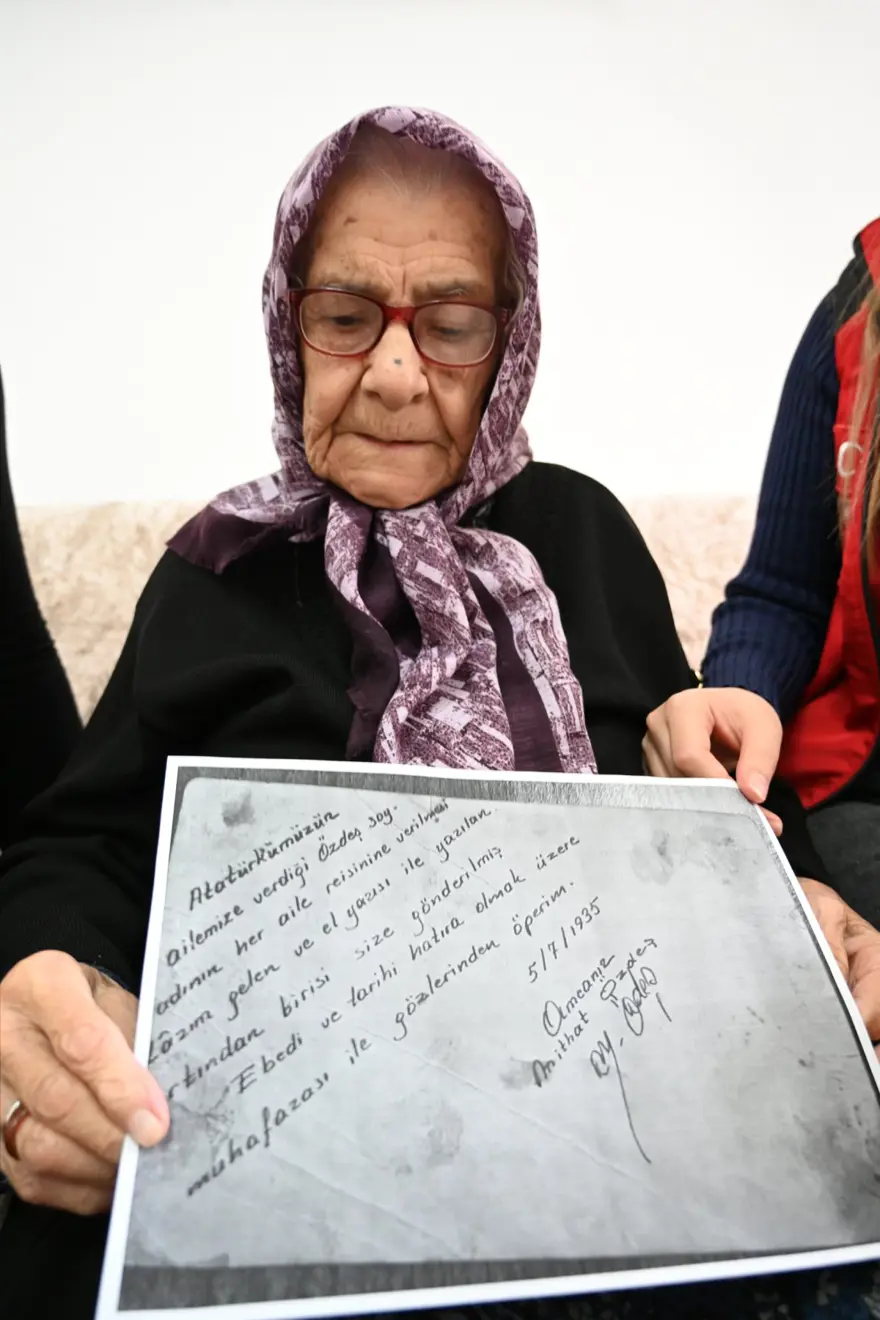 Atatürkümüzün
ailemize verdiği Özdeş soy-
adının her aile reisinine verilmesi
lâzım gelen ve el yazısı ile yazılan
rtından birisi size gönderilmiş
Ebedi ve tarihi hatıra olmak üzere
muhafazası ile gözlerinden öperim.
5/7/1935
Amcanız
Mithat Özdeş